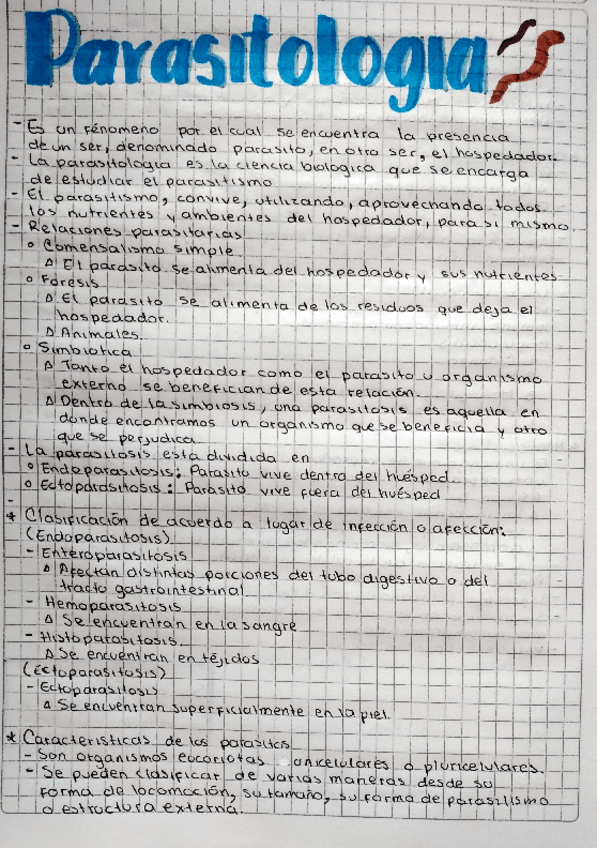 Parasitología
- Es un fénomeno por el cual se encuentra la presencia
de un ser, denominado parasito, en otro ser, el hospedador.
- La parasitologia es la ciencia biologica que se encarga
de estudiar el parasitismo
- El parasitismo, convive, utilizando, aprovechando todos
los nutrientes y ambientes del hospedador, para si mismo.
- Relaciones parasitarias
◦ Comensalismo simple
△ El parasito se alimenta del hospedador y sus nutrientes
◦ Foresis
△ El parasito se alimenta de los residuos que deja el
hospedador.
△ Animales.
◦ Simbiotica
△ Tanto el hospedador como el parasito u organismo
externo se benefician de esta relación.
△ Dentro de la simbiosis, una parasitosis es aquella en
donde encontramos un organismo que se beneficia y otro
que se perjudica
- La parasitosis esta dividida en
◦ Endoparasitosis: Parasito vive dentro del huésped.
◦ Ectoparasitosis: Parasito vive fuera del huésped
-
* Clasificación de acuerdo a lugar de infección o afección:
(Endoparasitosis)
- Enteroparasitosis
△ Afectan distintas porciones del tubo digestivo o del
tracto gastrointestinal
- Hemoparasitosis
△ Se encuentran en la sangre
- Histoparasitosis.
△ Se encuentran en téjidos
(Ectoparasitosis)
- Ectoparasitosis
△ Se encuentran superficialmente en la piel.
* Caracteristicas de los parasitos
- Son organismos eucariotas unicelulares o pluricelulares.
- Se pueden clasificar de varias maneras desde su
forma de locomoción, su tamaño, su forma de parasitismo
o estructura externa.